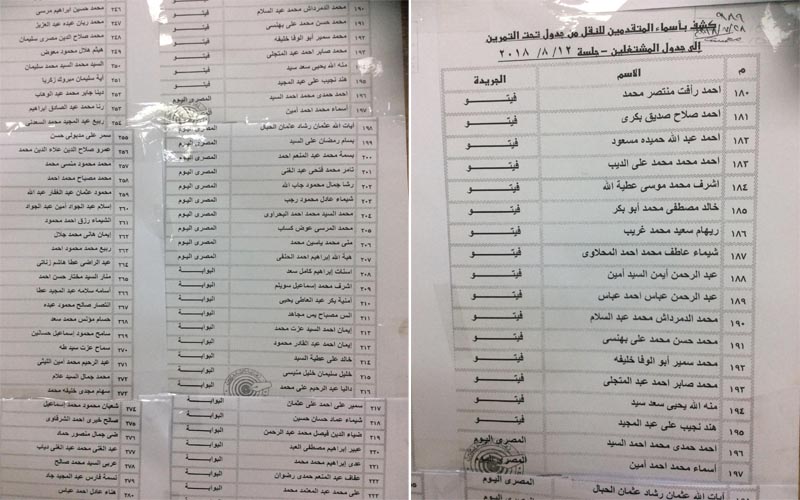 كشف بأسماء المتقدمين للنقل من جدول تحت التمرين
إلى جدول المشتغلين - جلسة ١٢ / ٨ / ٢٠١٨
م الاسم الجريدة
١٨٠ احمد رأفت منتصر محمد فيتو
١٨١ احمد صلاح صديق بكرى فيتو
١٨٢ احمد عبد الله حميده مسعود فيتو
١٨٣ احمد محمد محمد على الديب فيتو
١٨٤ اشرف محمد موسى عطية الله فيتو
١٨٥ خالد مصطفى محمد أبو بكر فيتو
١٨٦ ريهام سعيد محمد غريب فيتو
١٨٧ شيماء عاطف محمد احمد المحلاوى فيتو
١٨٨ عبد الرحمن أيمن السيد أمين فيتو
١٨٩ عبد الرحمن عباس احمد عباس فيتو
١٩٠ محمد الدمرداش محمد عبد السلام فيتو
١٩١ محمد حسن محمد على بهنسى فيتو
١٩٢ محمد سمير أبو الوفا خليفه فيتو
١٩٣ محمد صابر احمد عبد المتجلى فيتو
١٩٤ منه الله يحيى سعد سيد فيتو
١٩٥ هند نجيب على عبد المجيد فيتو
١٩٦ احمد حمدى محمد احمد السيد المصرى اليوم
١٩٧ أسماء محمد احمد أمين المصرى اليوم
١٩٨ آيات الله عثمان رشاد عثمان الحبال المصرى اليوم
١٩٩ بسام رمضان على السيد المصرى اليوم
٢٠٠ بسمة محمد عبد المنعم احمد المصرى اليوم
٢٠١ تامر محمد فتحى عبد الغنى المصرى اليوم
٢٠٢ رشا جمال محمود جاب الله المصرى اليوم
٢٠٣ شيماء عادل محمود رجب المصرى اليوم
٢٠٤ محمد السيد محمد احمد البحراوى المصرى اليوم
٢٠٥ محمد المرسى عوض كساب المصرى اليوم
٢٠٦ منى محمد ياسين محمد المصرى اليوم
٢٠٧ هبة الله إبراهيم احمد الحنفى المصرى اليوم
٢٠٨ إبراهيم كامل سعد البوابة
٢٠٩ اشرف محمد إسماعيل سويلم البوابة
٢١٠ أمنية بكر عبد العاطى يحيى البوابة
٢١١ انس مصباح يس مجاهد البوابة
٢١٢ إيمان احمد السيد عزت محمد البوابة
٢١٣ إيمان احمد عبد القادر محمود البوابة
٢١٤ خالد على عطية السيد البوابة
٢١٥ خليل سليمان خليل منيسى البوابة
٢١٦ داليا عبد الرحيم على محمد البوابة
٢١٧ سمير على احمد على عثمان البوابة
٢١٨ شيماء عماد حسان حسين البوابة
٢١٩ ضياء الدين فيصل محمد عبد الرحمن البوابة
٢٢٠ عبير إبراهيم مصطفى العبد البوابة
٢٢١ عدى إبراهيم محمد محمد البوابة
٢٢٢ عفاف عبد المنعم حمدى رضوان البوابة
على محمد عبد المعتمد محمد البوابة
٢٤٦ محمد حسين ابراهيم مرسى
٢٤٧ ريان عبده عبد العزيز
٢٤٨ محمد صلاح الدين مصرى سليمان
٢٤٩ هيثم هلال محمود معوض
٢٥٠ السيد محمد السيد محمد سليمان
٢٥١ آية سليمان مبروك زكريا
٢٥٢ دينا جابر محمد عبد الوهاب
٢٥٣ رنا محمد عبد الصادق ابراهيم
٢٥٤ ربيع عبد المجيد محمد السعدنى
٢٥٥ سمر على مدبولى حسن
٢٥٦ عمرو صلاح الدين علاء الدين محمد
٢٥٧ محمد محمود منسى محمد
٢٥٨ محمد مصباح محمد احمد
٢٥٩ محمود عثمان عبد الغفار عبد الله
٢٦٠ إسلام عبد الجواد أمين عبد الجواد
٢٦١ الشيماء رزق احمد محمود
٢٦٢ إيمان هانى محمد جلال
٢٦٣ ربيع محمد محمود احمد
٢٦٤ عبد الراضى عطا هاشم زناتى
٢٦٥ منار السيد مختار حسن احمد
٢٦٦ أسامه سلامه عبد المجيد عطا
٢٦٧ انتصار صالح محمود عبده
٢٦٨ حسام مؤنس محمد سعد
٢٦٩ سامح محمود إسماعيل حسانين
٢٧٠ سماح عزت سيد طه
٢٧١ عبد الرحيم محمد امين الليثى
٢٧٢ محمد جمال السيد علام
٢٧٣ سهام مجدى خليفه محمد
٢٧٤ شعبان محمود محمد إسماعيل
٢٧٥ صالح خيرى احمد الشرقاوى
٢٧٦ ضى جمال منصور حماد
٢٧٧ عبد الغنى محمد عبد الغنى دياب
٢٧٨ عربى السيد محمد صالح
٢٧٩ نسمة فارس عبد المجيد جاد
٢٨٠ هناء عادل احمد عباس